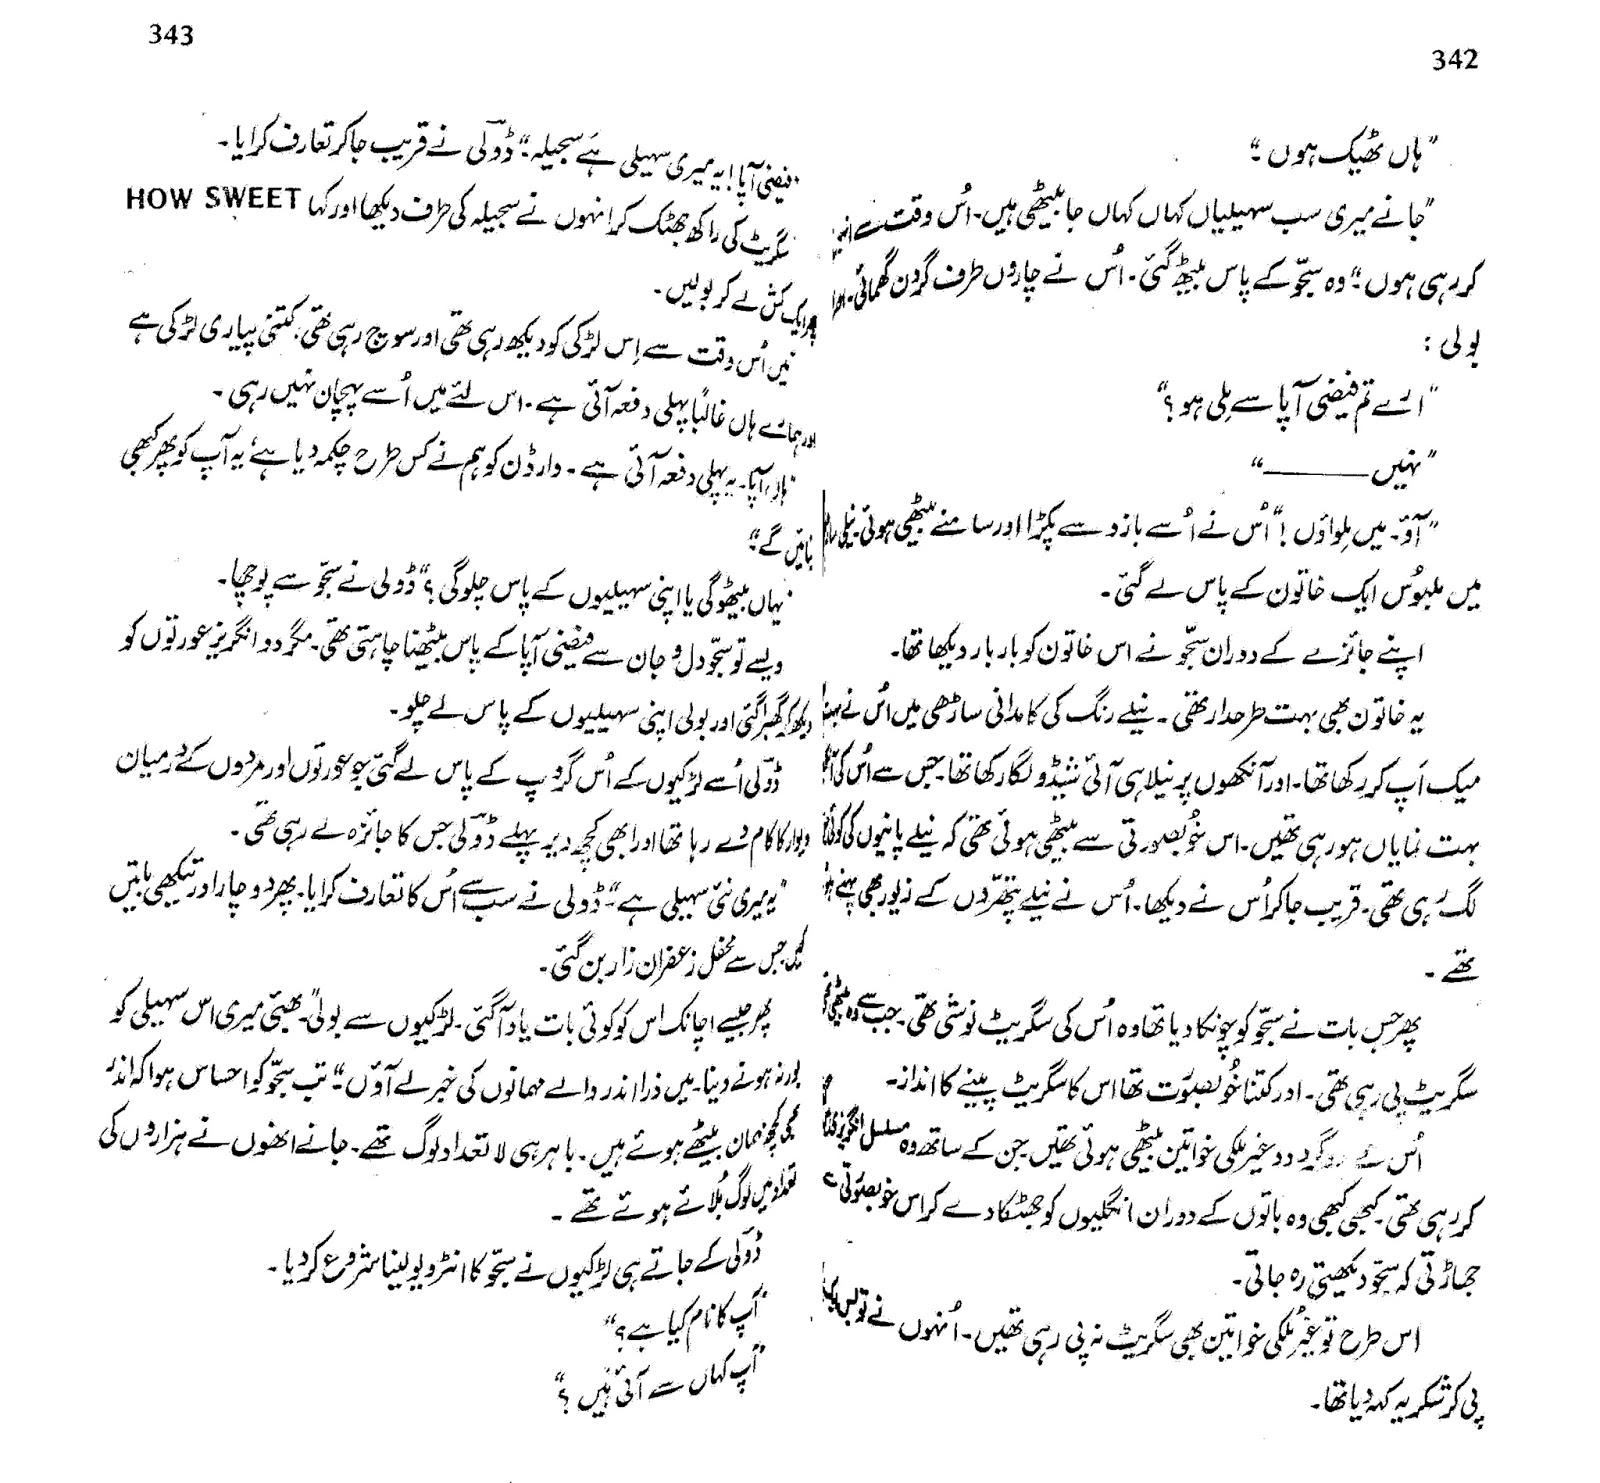 342
”ہاں ٹھیک ہوں“۔
”جانے میری سب سہیلیاں کہاں کہاں جا بیٹھی ہیں۔ اُس وقت سے
کر رہی ہوں“۔ وہ سجّو کے پاس بیٹھ گئی۔ اُس نے چاروں طرف گردن گھمائی۔
بولی :
”اے تم فیضی آپا سے ملی ہو؟“
”نہیں ـــــــــــ“
”آؤ۔ میں ملواؤں !“ اُس نے اُسے بازو سے پکڑا اور سامنے بیٹھی ہوئی۔ نیلی
میں ملبوُس ایک خاتون کے پاس لے گئی۔
اپنے جائزے کے دوران سجّو نے اس خاتون کو بار بار دیکھا تھا۔
یہ خاتون بھی بہت طرحدار تھی۔ نیلے رنگ کی کامدانی ساڑھی میں اُس نے
میک اَپ کر رکھا تھا۔ اور آنکھوں پر نیلا ہی آئی شیڈو لگا رکھا تھا۔ جس سے اُس کی
بہت نمایاں ہو رہی تھیں۔ اس خُوبصورتی سے بیٹھی ہوئی تھی کہ نیلے پانیوں کی
لگ رہی تھی۔ قریب جا کر اُس نے دیکھا۔ اُس نے نیلے پتھروں کے زیور بھی پہنے
تھے۔
پھر جس بات نے سجّو کو چونکا دیا تھا وہ اُس کی سگریٹ نوشی تھی۔ جب سے وہ
سگریٹ پی رہی تھی۔ اور کتنا خُوبصوُرت تھا اس کا سگریٹ پینے کا انداز۔
اُس کے دو غیر ملکی خواتین بیٹھی ہوئی تھیں۔ جن کے ساتھ وہ مسلسل
کر رہی تھی۔ کبھی کبھی وہ باتوں کے دوران انگلیوں کو جھٹکا دے کر اس خوبصوُرتی
جھاڑتی کہ سجّو دیکھتی رہ جاتی۔
اس طرح تو غیر مُلکی خواتین بھی سگریٹ نہ پی رہی تھیں۔ اُنہوں نے تو بس
پی کر شکریہ کہہ دیا تھا۔
343
فیضی آپا! یہ میری سہیلی ہے سجیلہ“۔ ڈولی نے قریب جا کر تعارف کرایا۔
سگریٹ کی راکھ جھٹک کر انہوں نے سجیلہ کی طرف دیکھا اور کہا HOW SWEET
پھر ایک کش لے کر بولیں۔
میں اُس وقت سے اِس لڑکی کو دیکھ رہی تھی اور سوچ رہی تھی۔ کتنی پیاری لڑکی ہے
اور ہمارے ہاں غالباً پہلی دفعہ آئی ہے۔ اس لئے میں اُسے پہچان نہیں رہی۔
ہاں آپا۔ یہ پہلی دفعہ آئی ہے۔ وارڈن کو ہم نے کس طرح چکمہ دیا ہے یہ آپ کو پھر کبھی
بتائیں گے“۔
”یہاں بیٹھو گی یا اپنی سہیلیوں کے پاس چلو گی؟“ ڈولی نے سجّو سے پوچھا۔
ویسے تو سجّو دل و جان سے فیضی آپا کے پاس بیٹھنا چاہتی تھی۔ مگر دو انگریز عورتوں کو
دیکھ کر گھبرا گئی اور بولی اپنی سہیلیوں کے پاس لے چلو۔
ڈولی اُسے لڑکیوں کے اُس گروپ کے پاس لے گئی جو عورتوں اور مردوں کے درمیان
دیوار کا کام دے رہا تھا اور ابھی کچھ دیر پہلے ڈولی جس کا جائزہ لے رہی تھی۔
”یہ میری نئی سہیلی ہے“۔ ڈولی نے سب سے اُس کا تعارف کرایا۔ پھر دو چار اور تیکھی باتیں
کیں جس سے محفل زعفران زار بن گئی۔
پھر جیسے اچانک اس کو کوئی بات یاد آ گئی۔ لڑکیوں سے بولی ”بھئی میری اس سہیلی کو
بور نہ ہونے دینا۔ میں ذرا اندر والے مہمانوں کی خبر لے آؤں“۔ تب سجّو کو احساس ہوا کہ اندر
بھی کچھ مہمان بیٹھے ہوئے ہیں۔ باہر ہی لا تعداد لوگ تھے۔ جانے انھوں نے ہزاروں کی
تعداد میں لوگ بُلائے ہوئے تھے۔
ڈولی کے جاتے ہی لڑکیوں نے سجّو کا انٹرویو لینا شروع کر دیا۔
”آپ کا نام کیا ہے؟“
”آپ کہاں سے آئی ہیں؟“